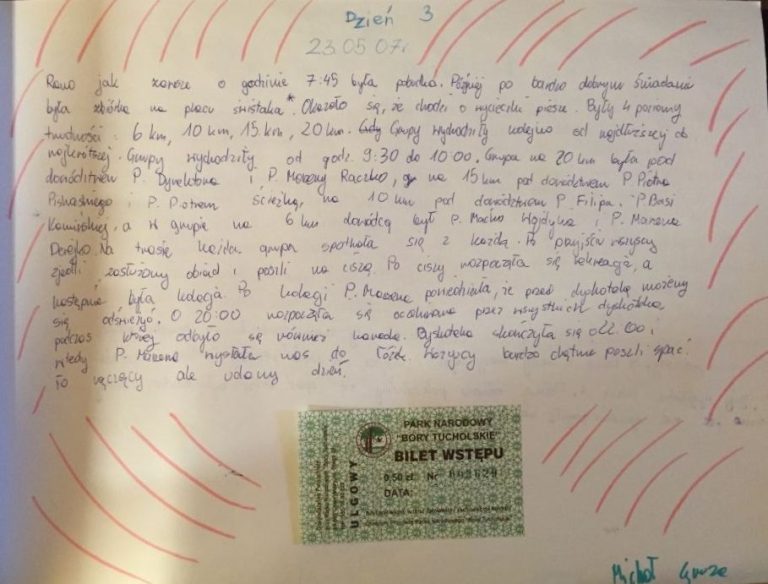 Dzień 3
23.05.07r
Rano jak zawsze o godzinie 7:45 była pobudka. Później po bardzo dobrym śniadaniu
była zbiórka na placu świstaka*. Okazało się, że chodzi o wycieczki piesze. Były 4 poziomy
trudności: 6 km, 10 km, 15 km, 20 km. Grupy wychodziły kolejno od najdłuższej do
najkrótszej. Grupy wychodziły od godz. 9:30 do 10:00. Grupa na 20 km była pod
dowództwem P. Dyrektora i P. Marzeny Raczko, na 15 km pod dowództwem P. Piotra
i P. Piotrem na 10 km pod dowództwem P. Filipa. P Basi
a w grupie na 6 km dowódcą był P. Maćko i P. Marzena
Na trasie każda grupa spotkała się z każdą. Po przyjściu wszyscy
zjedli zasłużony obiad i poszli na ciszę. Po ciszy rozpoczęła się rekreacja, a
następnie była kolacja. Po kolacji P. Marzena powiedziała, że przed dyskoteką możemy
się odświeżyć. O 20:00 rozpoczęła się oczekiwana przez wszystkich dyskoteka,
podczas której odbyło się również karaoke. Dyskoteka skończyła się o 22:00 i
wtedy P. Marzena wysłała nas do łóżek. Wszyscy bardzo chętnie poszli spać.
To męczący ale udany dzień.
PARK NARODOWY
"BORY TUCHOLSKIE"
BILET WSTĘPU
0,50 zł. Nr
DATA:
ULGOWY
Michał